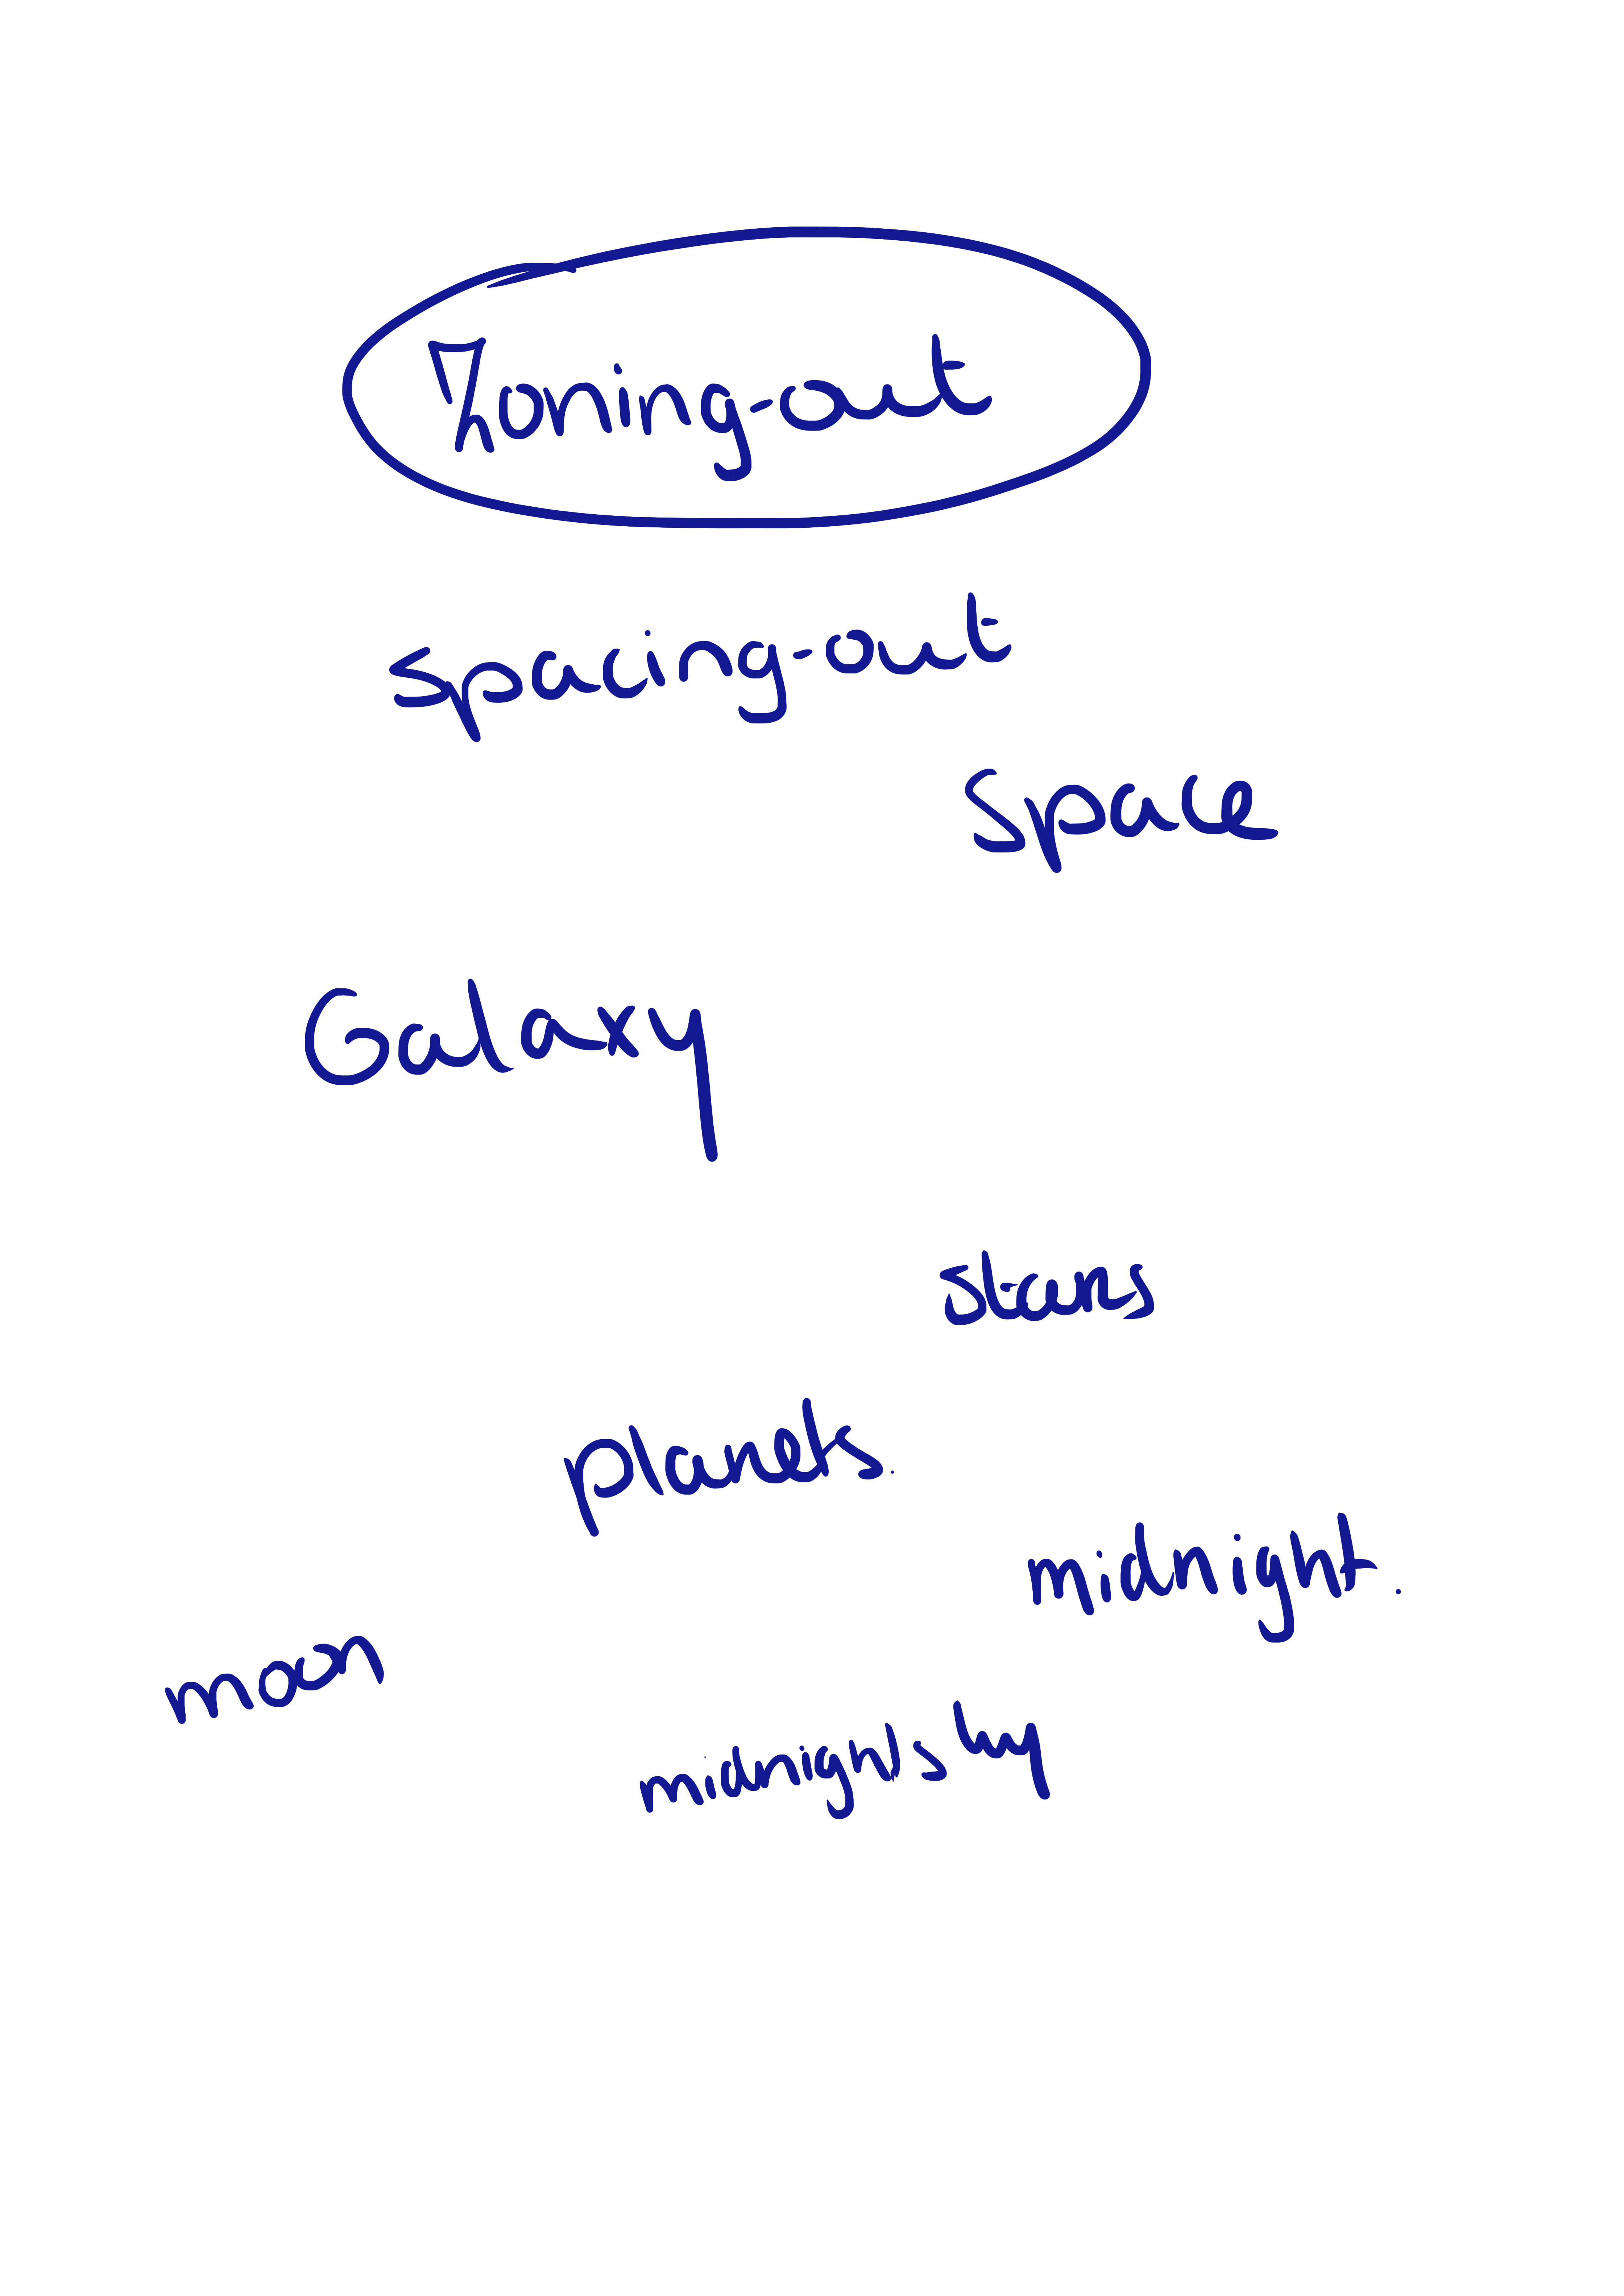 Zoning-out
spacing-out
Space
Galaxy
stars
planets.
midnight.
moon
midnight sky